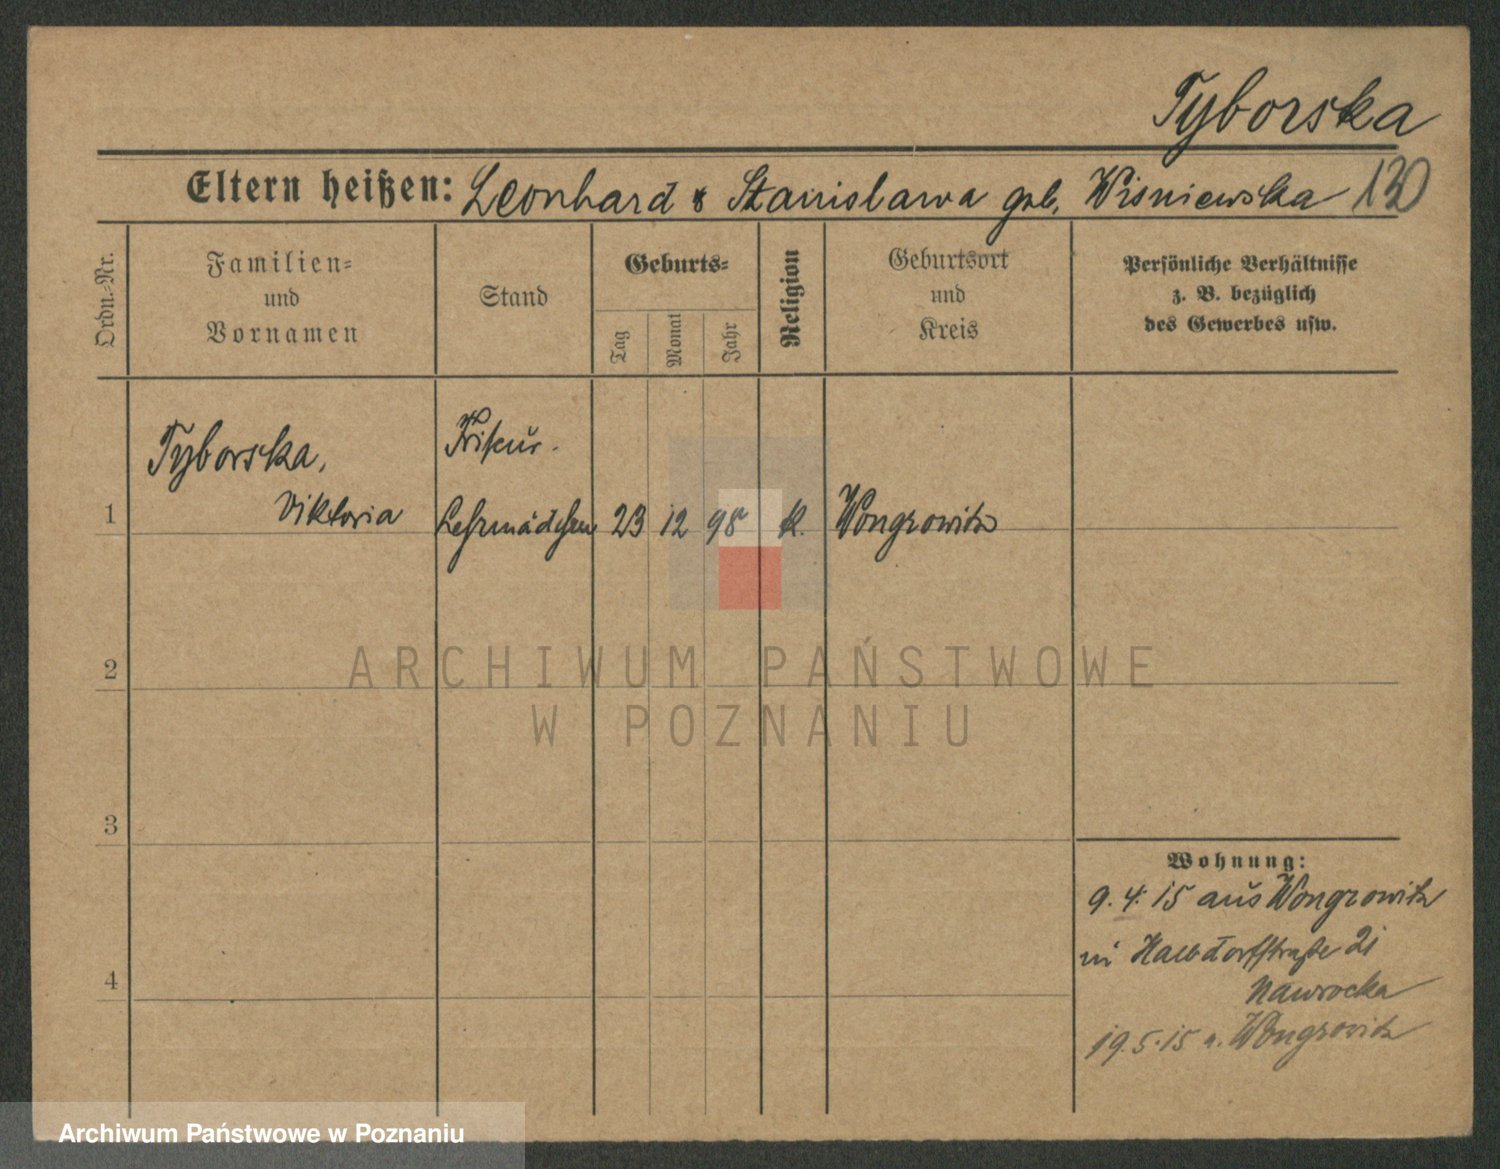 Tyborska
Eltern heißen: Leonhard & Stanislawa geb. Wisniewska 130
Ordn.-Nr.
Familien-
und
Vornamen
Stand
Geburts-
Tag
Monat
Jahr
Religion
Geburtsort
und
Kreis
Persönliche Verhältnisse
z. B. bezüglich
des Gewerbes usw.
Tyborska,
Viktoria
Friseur-
Lehrmädchen
1
23 12 98 k. Wongrowitz
2
3
4
Wohnung:
9. 4. 15 aus Wongrowitz
in Halbdorfstraße 21
Nawrocka
19. 5. 15 n. Wongrowitz
ARCHIWUM PAŃSTWOWE
W POZNANIU
Archiwum Państwowe w Poznaniu